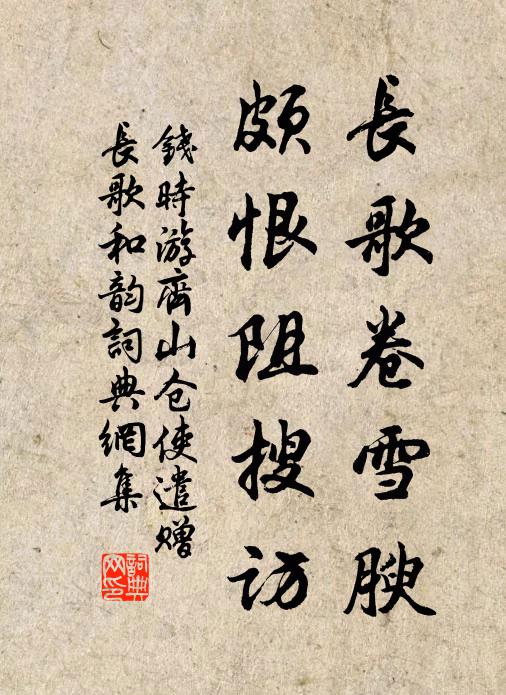 長歌卷雪腴
頗恨阻搜访
錢時游齊山仓使遣赠
長歌和韵詞典網集
詞典网印